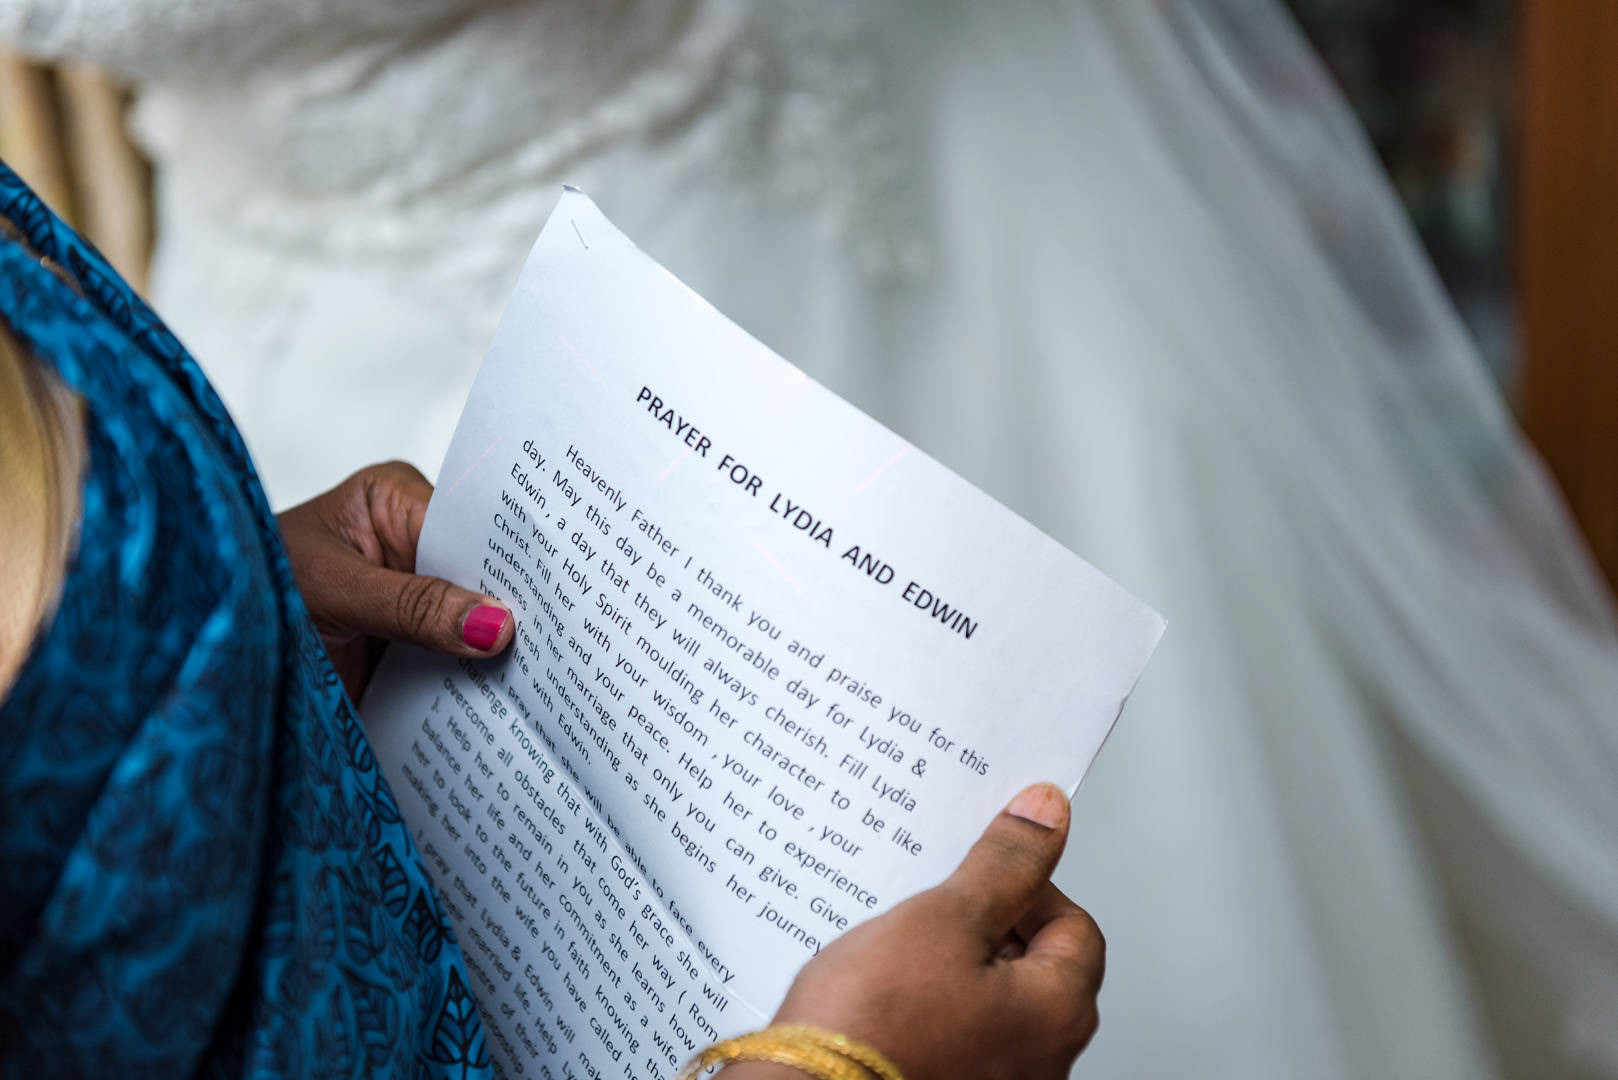 PRAYER FOR LYDIA AND EDWIN
Heavenly Father I thank you and praise you for this
day. May this day be a memorable day for Lydia &
Edwin , a day that they will always cherish. Fill Lydia
with your Holy Spirit moulding her character to be like
Christ. Fill her with your wisdom , your love , your
understanding and your peace. Help her to experience
fullness in her marriage that only you can give. Give
her fresh understanding as she begins her journey
life with Edwin.
I pray that she will be able to face every
challenge knowing that with God's grace she will
overcome all obstacles that come her way ( Rom
). Help her to remain in you as she learns how to
balance her life and her commitment as a wife.
her to look to the future in faith knowing
making her into the wife you have called
I pray that Lydia & Edwin will
their married life. Help
centre of their